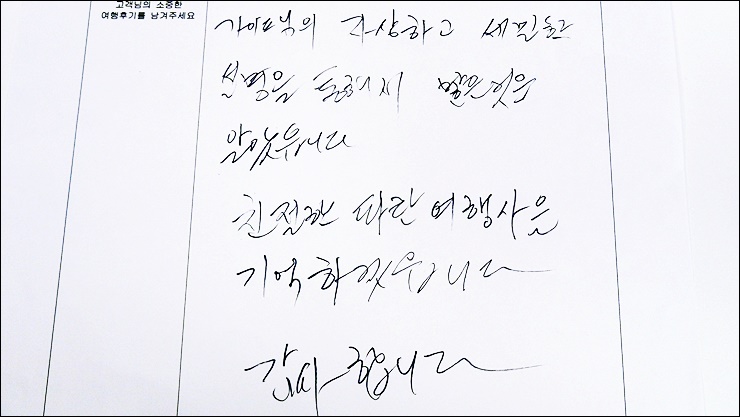 고객님의 소중한
여행후기를 남겨주세요
가이드님의 자상하고 세밀한
설명을 통해서 많은것을
알았습니다
친절한 파란 여행사을
기억하겠습니다
감사합니다